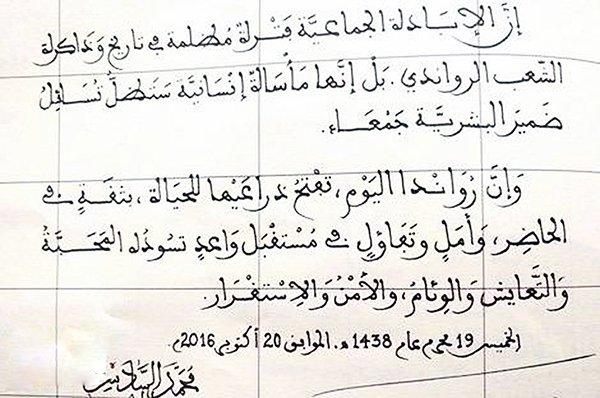 إنَّ الإبَادلة الجماعيَّة فَتْرَة مُظلمة في تاريخ وَذاكرة
الشّعب الرواندي. بَلْ إنَّها مَأْسَاةٌ إنْسَانيَّة سَتَظلُّ تُسَائِلُ
ضَميرَ البشريَّة جَمْعَاء.
وَإنَّ رُوَانْدا اليَوْم، تفْتَحُ ذراعَيْها للحَيَاة، بثقَةٍ في
الحَاضِر، وَأمَلٍ وتَفَاؤلٍ في مُسْتقْبَل وَاعدٍ تسُودُه المَحَبَّةُ
وَالتَّعايش وَالوِئامُ، والأمْنُ وَالاِسْتقْرَار.
الخميس 19 محرم عام 1438 ه، الموافق 20 أكتوبر 2016م.
محمد السادس